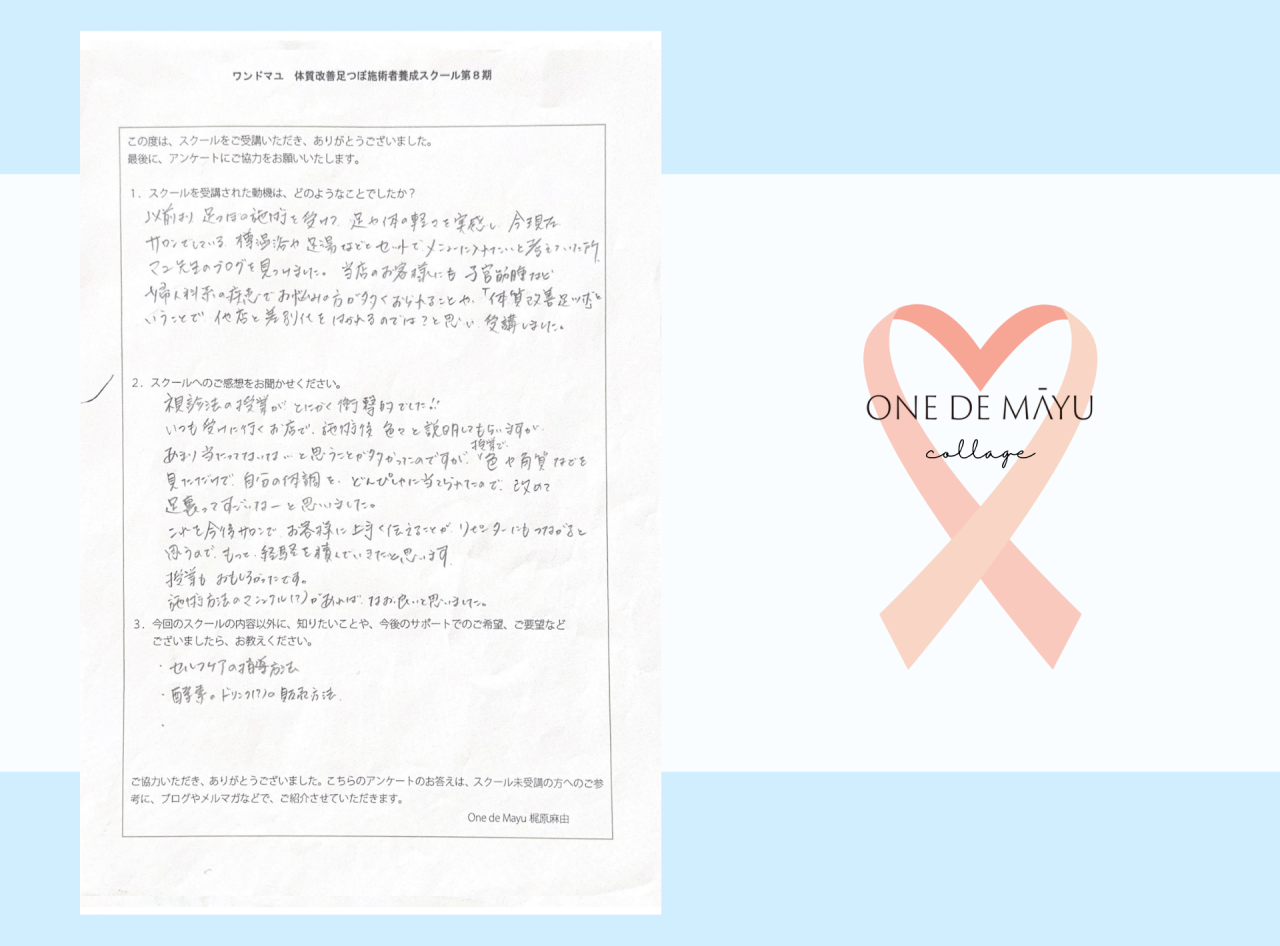 ワンドマユ 体質改善足つぼ施術者養成スクール第8期
この度は、スクールをご受講いただき、ありがとうございました。
最後に、アンケートにご協力をお願いいたします。
1．スクールを受講された動機は、どのようなことでしたか？
以前より 足つぼの施術を受けて、足や体の軽さを実感し 今現在
サロンでしている 樽温浴や足湯などとセットでメニューに入れたいと考えていた所、
マユ先生のブログを見つけました。当店のお客様にも 子宮筋腫など
婦人科系の疾患でお悩みの方が多くおられることや、「体質改善足つぼ」と
いうことで 他店と差別化をはかれるのでは？と思い 受講しました。
2．スクールへのご感想をお聞かせください。
視診法の授業が とにかく衝撃的でした!!
いつも受けに行くお店で、施術後 色々と説明してもらいますが、
あまり当たってないな…と思うことが多かったのですが、授業で、色や角質などを
見ただけで、自分の体調を、どんぴしゃに当てられたので、改めて
足裏ってすごいなーと思いました。
これを今後サロンで、お客様に上手く伝えることが、リピーターにもつながると
思うので、もっと、経験を積んでいきたいと思います
授業も おもしろかったです。
施術方法のマニュアル(?)があれば、なお良いと思いました。
3．今回のスクールの内容以外に、知りたいことや、今後のサポートでのご希望、ご要望など
ございましたら、お教えください。
・セルフケアの指導方法
・酵素のドリンク(?)の販売方法
・
ご協力いただき、ありがとうございました。こちらのアンケートのお答えは、スクール未受講の方へのご参
考に、ブログやメルマガなどで、ご紹介させていただきます。
One de Mayu 梶原麻由
ONE DE MĀYU
collage